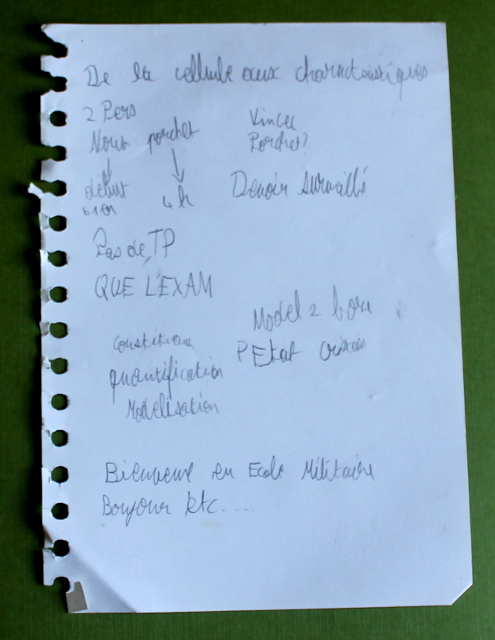 De la cellule aux charactéristiques
2 Pers
Nour porchet
Porchet?
début
4 h
Devoir surveillé
Pas de TP
QUE L'EXAM
Model 2
PEtat
quantification
Modélisation
Bienvenue en Ecole Militaire
Bonjour Etc....